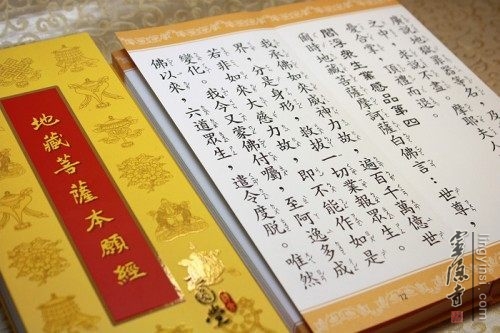 地藏菩薩本願經
廣說地獄罪器等名，及
之中，求說不盡。摩耶夫人
憂合掌，頂禮而退。
閻浮眾生業感品第四
爾時地藏菩薩摩訶薩白佛言：世尊，
我承佛如來威神力故，遍百千萬億世
界，分是身形，救拔一切業報眾生。
若非如來大慈力故，即不能作如是
變化。我今又蒙佛付囑，至阿逸多成
佛以來，六道眾生，遣令度脫。唯然
12
靈隱寺
lingyinsi.com